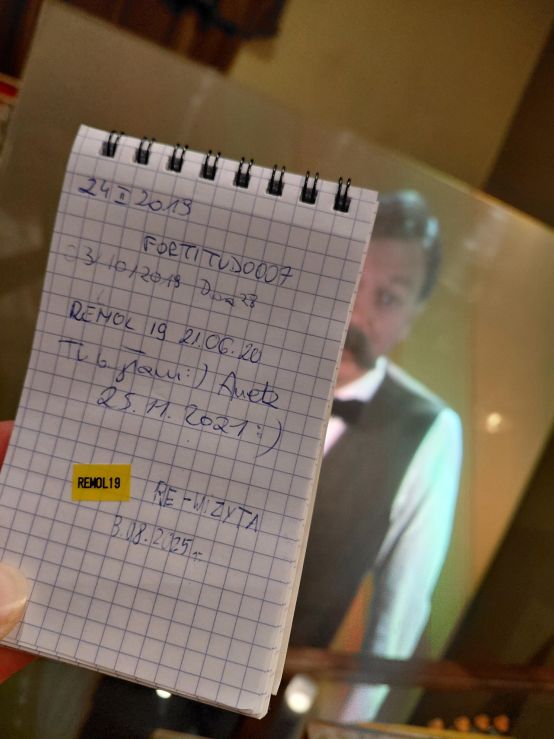 24 II 2019
FORTITUDO007
03/10/2019
REMOL 19 21.06.20
Tu byłam :) Aneta
25.11.2021 :)
REMOL19
RE-WIZYTA
3.08.2025r.